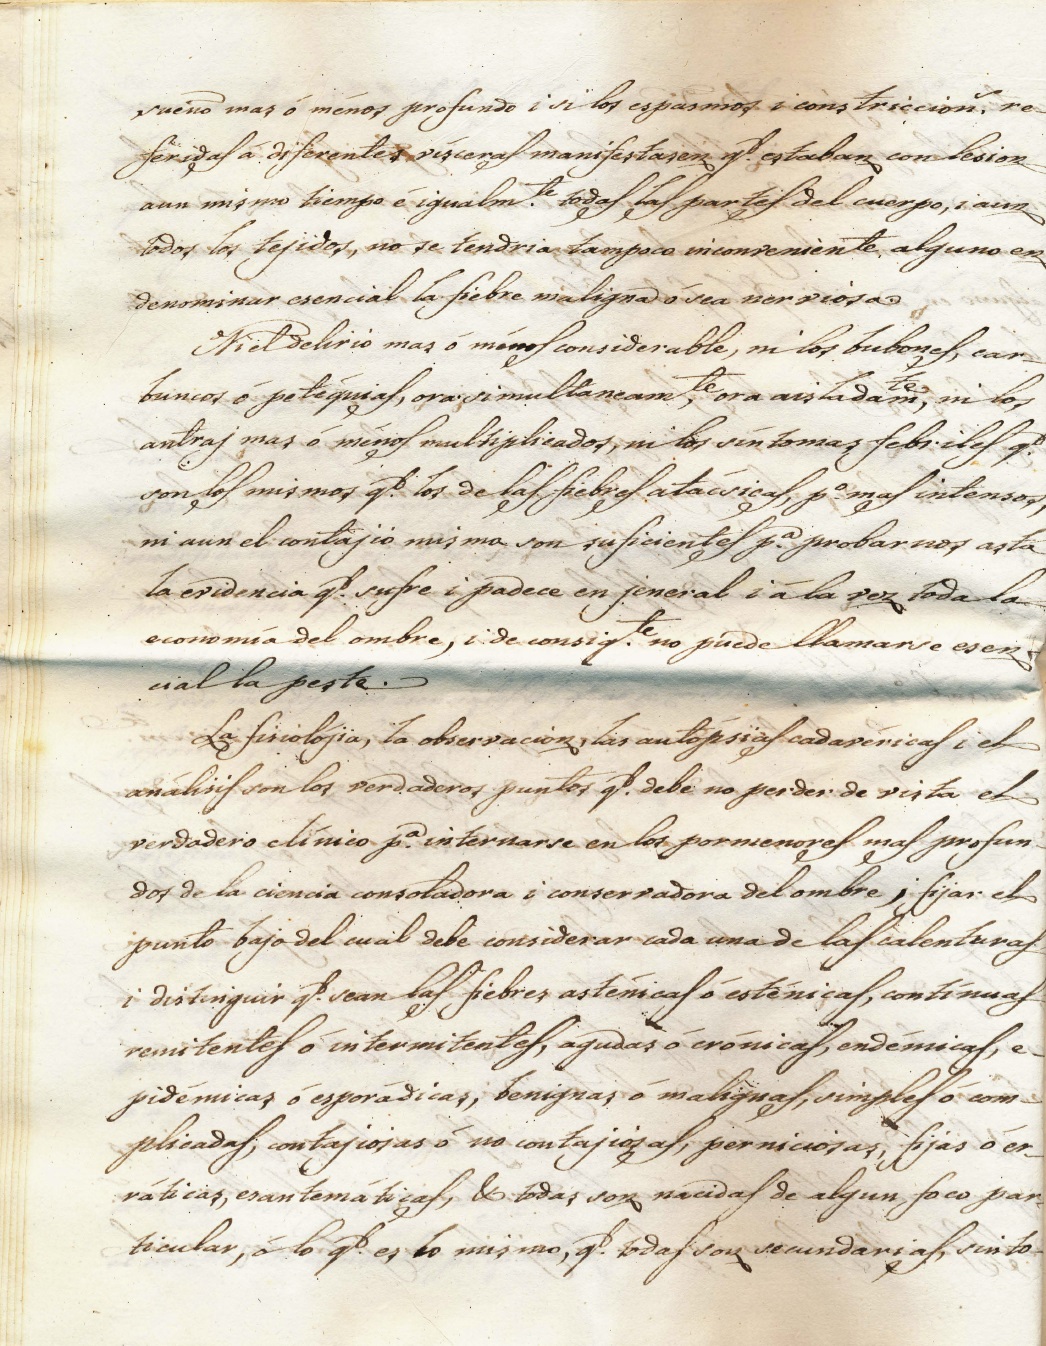 sueño mas ó ménos profundo i si los espasmos i constriccion.ˢ re-
feridas á diferentes vísceras manifestasen q.ᵉ estaban con lesion
aun mismo tiempo é igualm.ᵗᵉ todas las partes del cuerpo, i aun
todos los tejidos, no se tendria tampoco inconveniente alguno en
denominar esencial la fiebre maligna ó sea nerviosa.
Ni el delirio mas ó ménos considerable, ni los bubones, car-
buncos ó petéquias, ora simultaneam.ᵗᵉ, ora aisladam.ᵗᵉ, ni los
antraj mas ó ménos multiplicados, ni los síntomas febriles q.ᵉ
son los mismos q.ᵉ los de las fiebres atácsicas, p.º mas intensos,
ni aun el contájio mismo son suficientes p.ª probarnos asta
la evidencia q.ᵉ sufre i padece en jeneral i á la vez toda la
economía del ombre, i de consig.ᵗᵉ no puede llamarse esen-
cial la peste.
La fisiolójia, la observacion, las autópsias cadavéricas i el
análisis son los verdaderos puntos q.ᵉ debe no perder de vista el
verdadero clínico p.ª internarse en los pormenores mas profun-
dos de la ciencia consoladora i conservadora del ombre, i fijar el
punto bajo del cual debe considerar cada una de las calenturas
i distinguir q.ᵉ sean las fiebres asténicas ó esténicas, contínuas
remitentes ó intermitentes, agudas ó crónicas, endémicas, e-
pidémicas ó esporádicas, benignas ó malignas, simples ó com-
plicadas, contajiosas ó no contajiosas, perniciosas, fijas ó er-
ráticas, esantemáticas, & todas son nacidas de algun foco par-
ticular, ó lo q.ᵉ es lo mismo, q.ᵉ todas son secundarias, sinto-